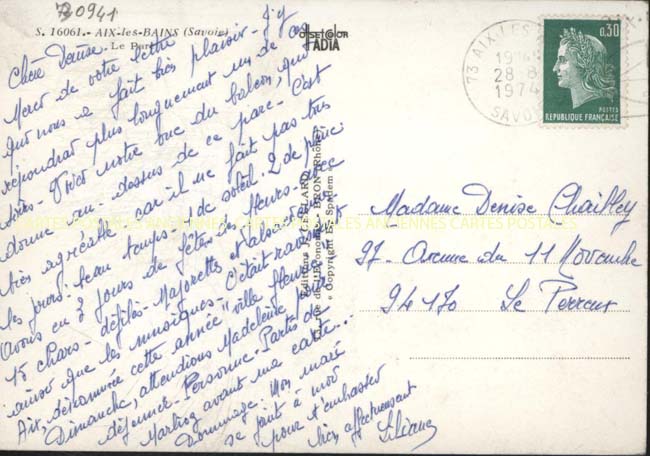 720941
S. 16061.- AIX-les-BAINS (Savoie)
Le Parc
OFFSETCOLOR
IADIA
Chère Denise.
Merci de votre lettre
qui nous a fait très plaisir - J'y
répondrai plus longuement un de ces
soirs - Voici notre vue du balcon, qui
donne au-dessus de ce parc - C'est
très agréable car il ne fait pas très
les jours - beau temps de soleil.
Avons eu 2 jours de fêtes des fleurs - avec
15 chars - défilés - Majorettes et alsaciennes
ainsi que les musiques - C'était ravissant
Aix, dénommée cette année "ville fleurie"
Dimanche, attendions Madeleine pour
déjeuner - Personne - Partis de
Marlioz avant ma carte...
Dommage - Mon mari
se joint à moi
pour t'embrasser
bien affectueusement
Liliane
Editions J. CELLARD
rue de l'Economie - BRON (Rhône)
« Copyright by Spadem »
73 AIX-LES-
28-8
1974
SAVOIE
0,30
POSTES
REPUBLIQUE FRANÇAISE
Madame Denise Chailley
97 - Avenue du 11 Novembre
94170 Le Perreux
CARTES POSTALES ANCIENNES CARTES POSTALES ANCIENNES CARTES POSTALES